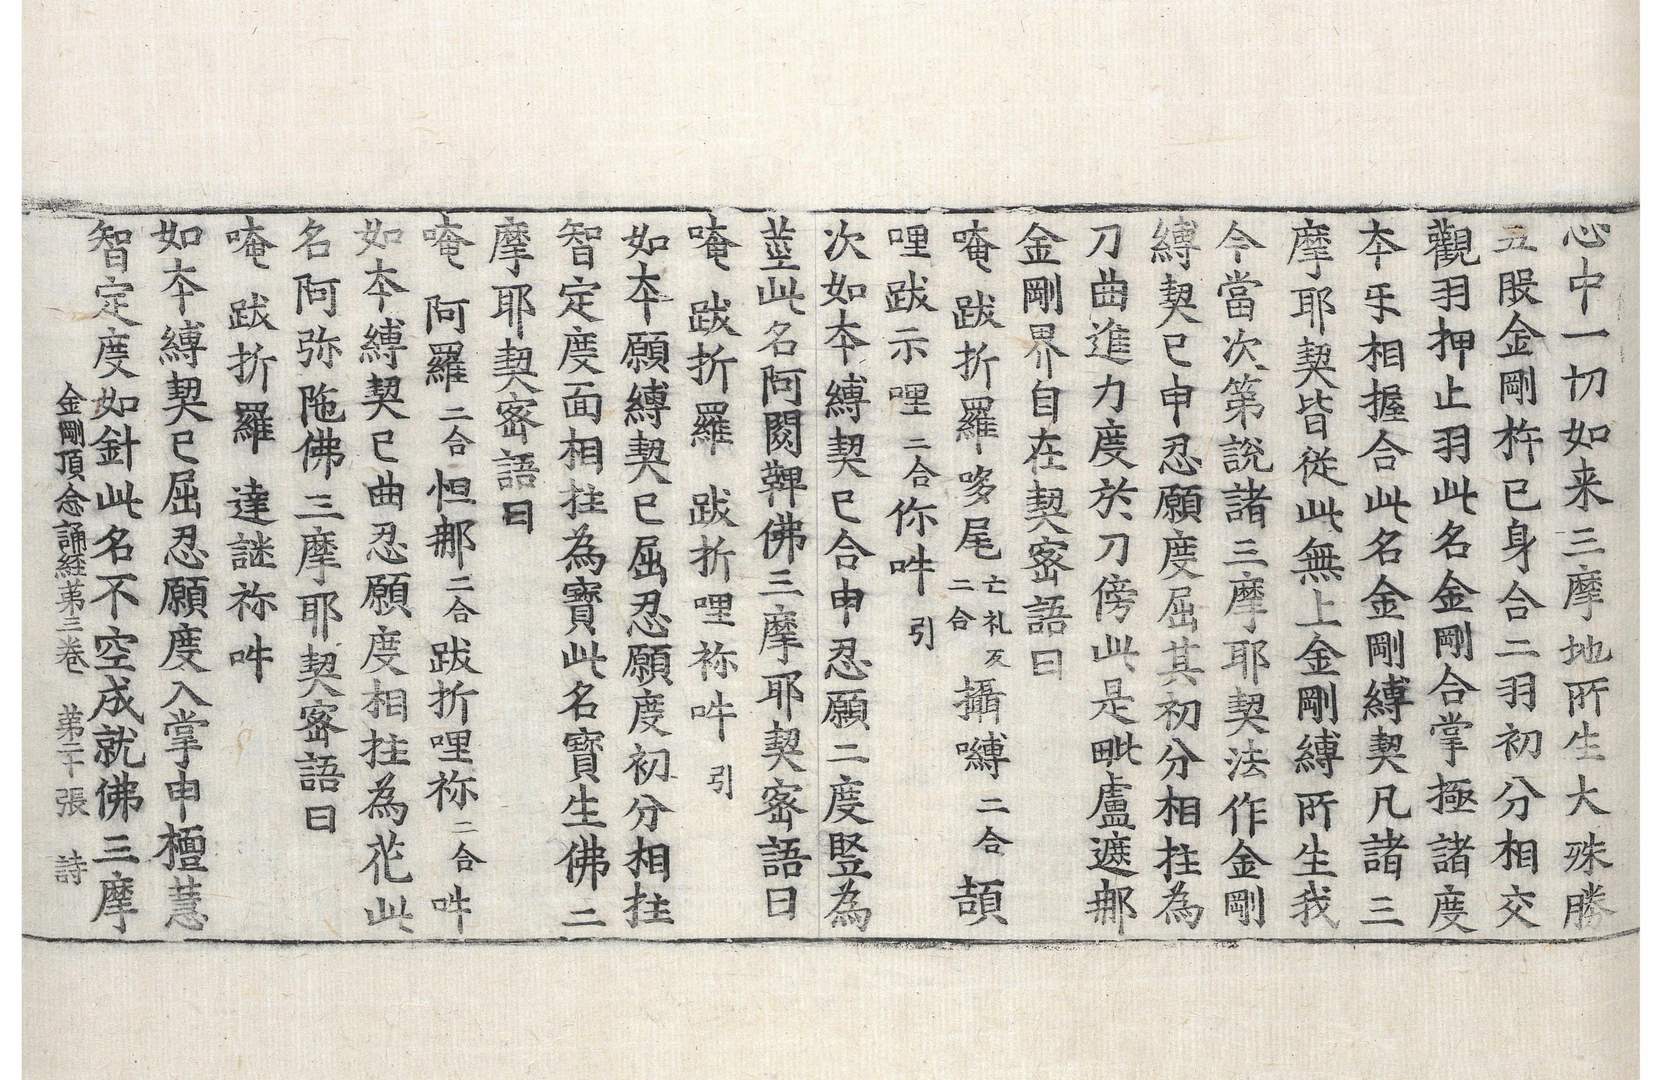 心中一切如来三摩地所生大殊勝
五股金剛杵已身合二羽初分相交
觀羽押止羽此名金剛合掌極諸度
夲乐相握合此名金剛縛契凡諸三
摩耶契皆從此無上金剛縛所生我
今當次第說諸三摩耶契法作金剛
縛契已申忍願度屈其初分相拄為
刀曲進力度於刀傍此是毗盧遮那
金剛界自在契密語曰
唵 跋折羅哆尾亡礼反二合攝嚩二合頡
哩跋示哩二合你吽引
次如夲縛契已合申忍願二度竪為
莖此名阿閦鞞佛三摩耶契密語曰
唵 跋折羅 跋折哩祢吽引
如夲願縛契已屈忍願度初分相拄
智定度面相拄為寳此名寳生佛二
摩耶契密語曰
唵 阿羅二合怛那二合跋折哩祢二合吽
如夲縛契已曲忍願度相拄為花此
名阿弥陁佛三摩耶契密語曰
唵 跋折羅 達謎祢吽
如夲縛契已屈忍願度入掌申檀慧
智定度如針此名不空成就佛三摩
金剛頂念誦経苐三卷 苐二十張 詩